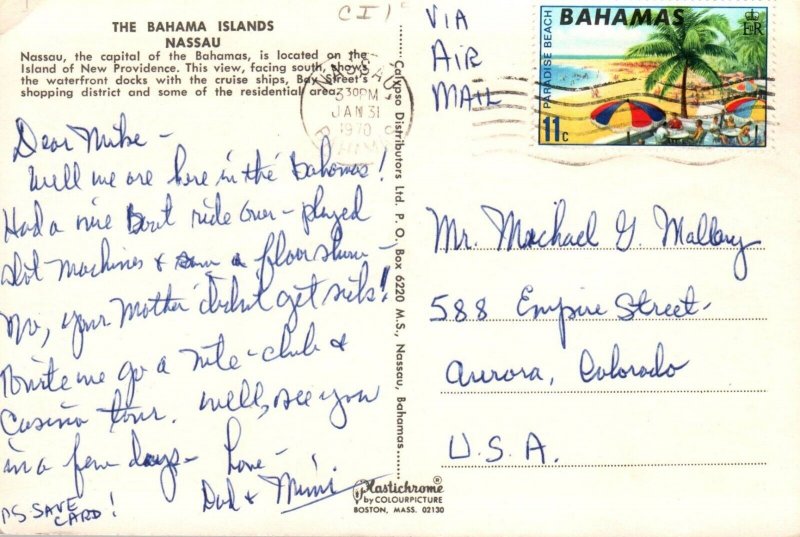 CI
THE BAHAMA ISLANDS
NASSAU
Nassau, the capital of the Bahamas, is located on the
Island of New Providence. This view, facing south, shows
the waterfront docks with the cruise ships, Bay Street's
shopping district and some of the residential area.
NASSAU
330PM
JAN 31
1970
BAHAMAS
Dear Mike -
Well we are here in the Bahamas!
Had a nice Boat ride over - played
slot machines & saw a floor show -
No, your Mother didn't get sick!
Tonite we go a nite-club &
Casino tour. Well, see you
in a few days - Love -
Dad & Mimi
PS. SAVE
CARD!
Calypso Distributors Ltd. P. O., Box 6220 M.S., Nassau, Bahamas
Plastichrome
by COLOURPICTURE
BOSTON, MASS. 02130
VIA
AIR
MAIL
PARADISE BEACH
BAHAMAS
EIIR
11c
Mr. Michael G. Mallory
588 Empire Street.
Aurora, Colorado
U.S.A.